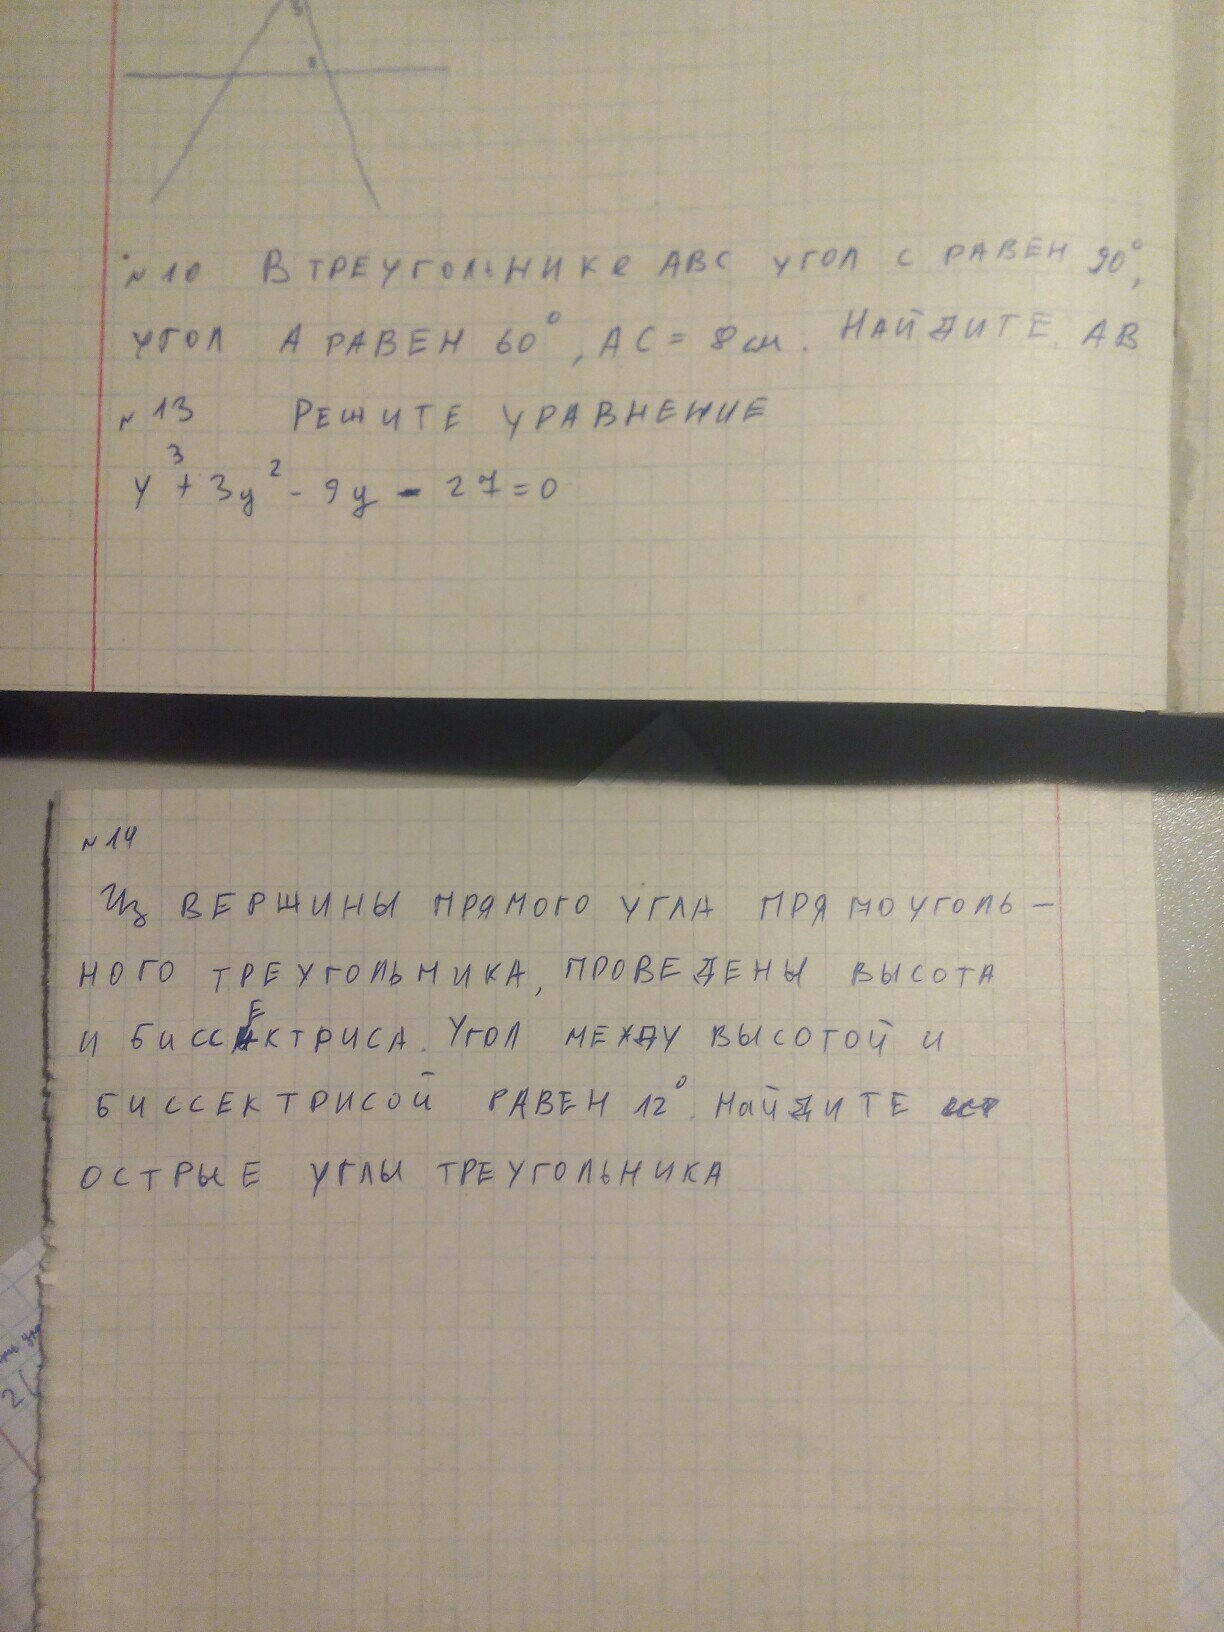 N 10 В ТРЕУГОЛЬНИКЕ АВС УГОЛ С РАВЕН 90°,
УГОЛ А РАВЕН 60°, АС = 8 см. НАЙДИТЕ АВ
N 13 РЕШИТЕ УРАВНЕНИЕ
y³ + 3y² - 9y - 27 = 0
N 14
Из ВЕРШИНЫ ПРЯМОГО УГЛА ПРЯМОУГОЛЬ-
НОГО ТРЕУГОЛЬНИКА, ПРОВЕДЕНЫ ВЫСОТА
И БИССЕКТРИСА. УГОЛ МЕЖДУ ВЫСОТОЙ И
БИССЕКТРИСОЙ РАВЕН 12°. НАЙДИТЕ
ОСТРЫЕ УГЛЫ ТРЕУГОЛЬНИКА